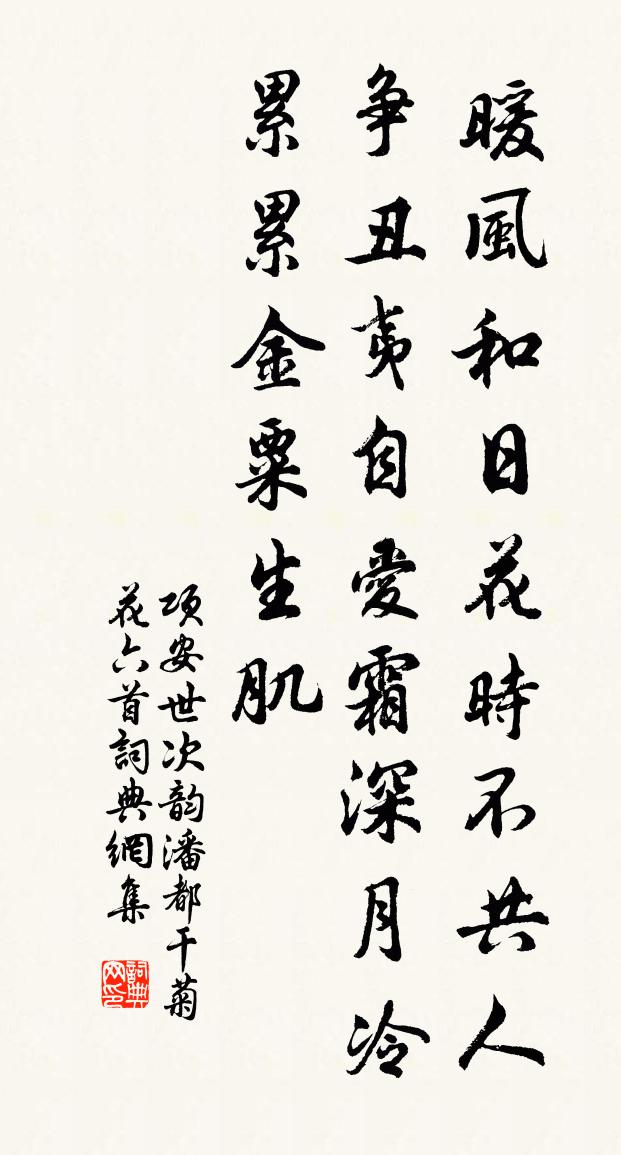 暖風和日花時不共人
争丑夷自愛霜深月冷
累累金粟生肌
項安世次韵潘都干菊
花六首詞典網集
詞典網印